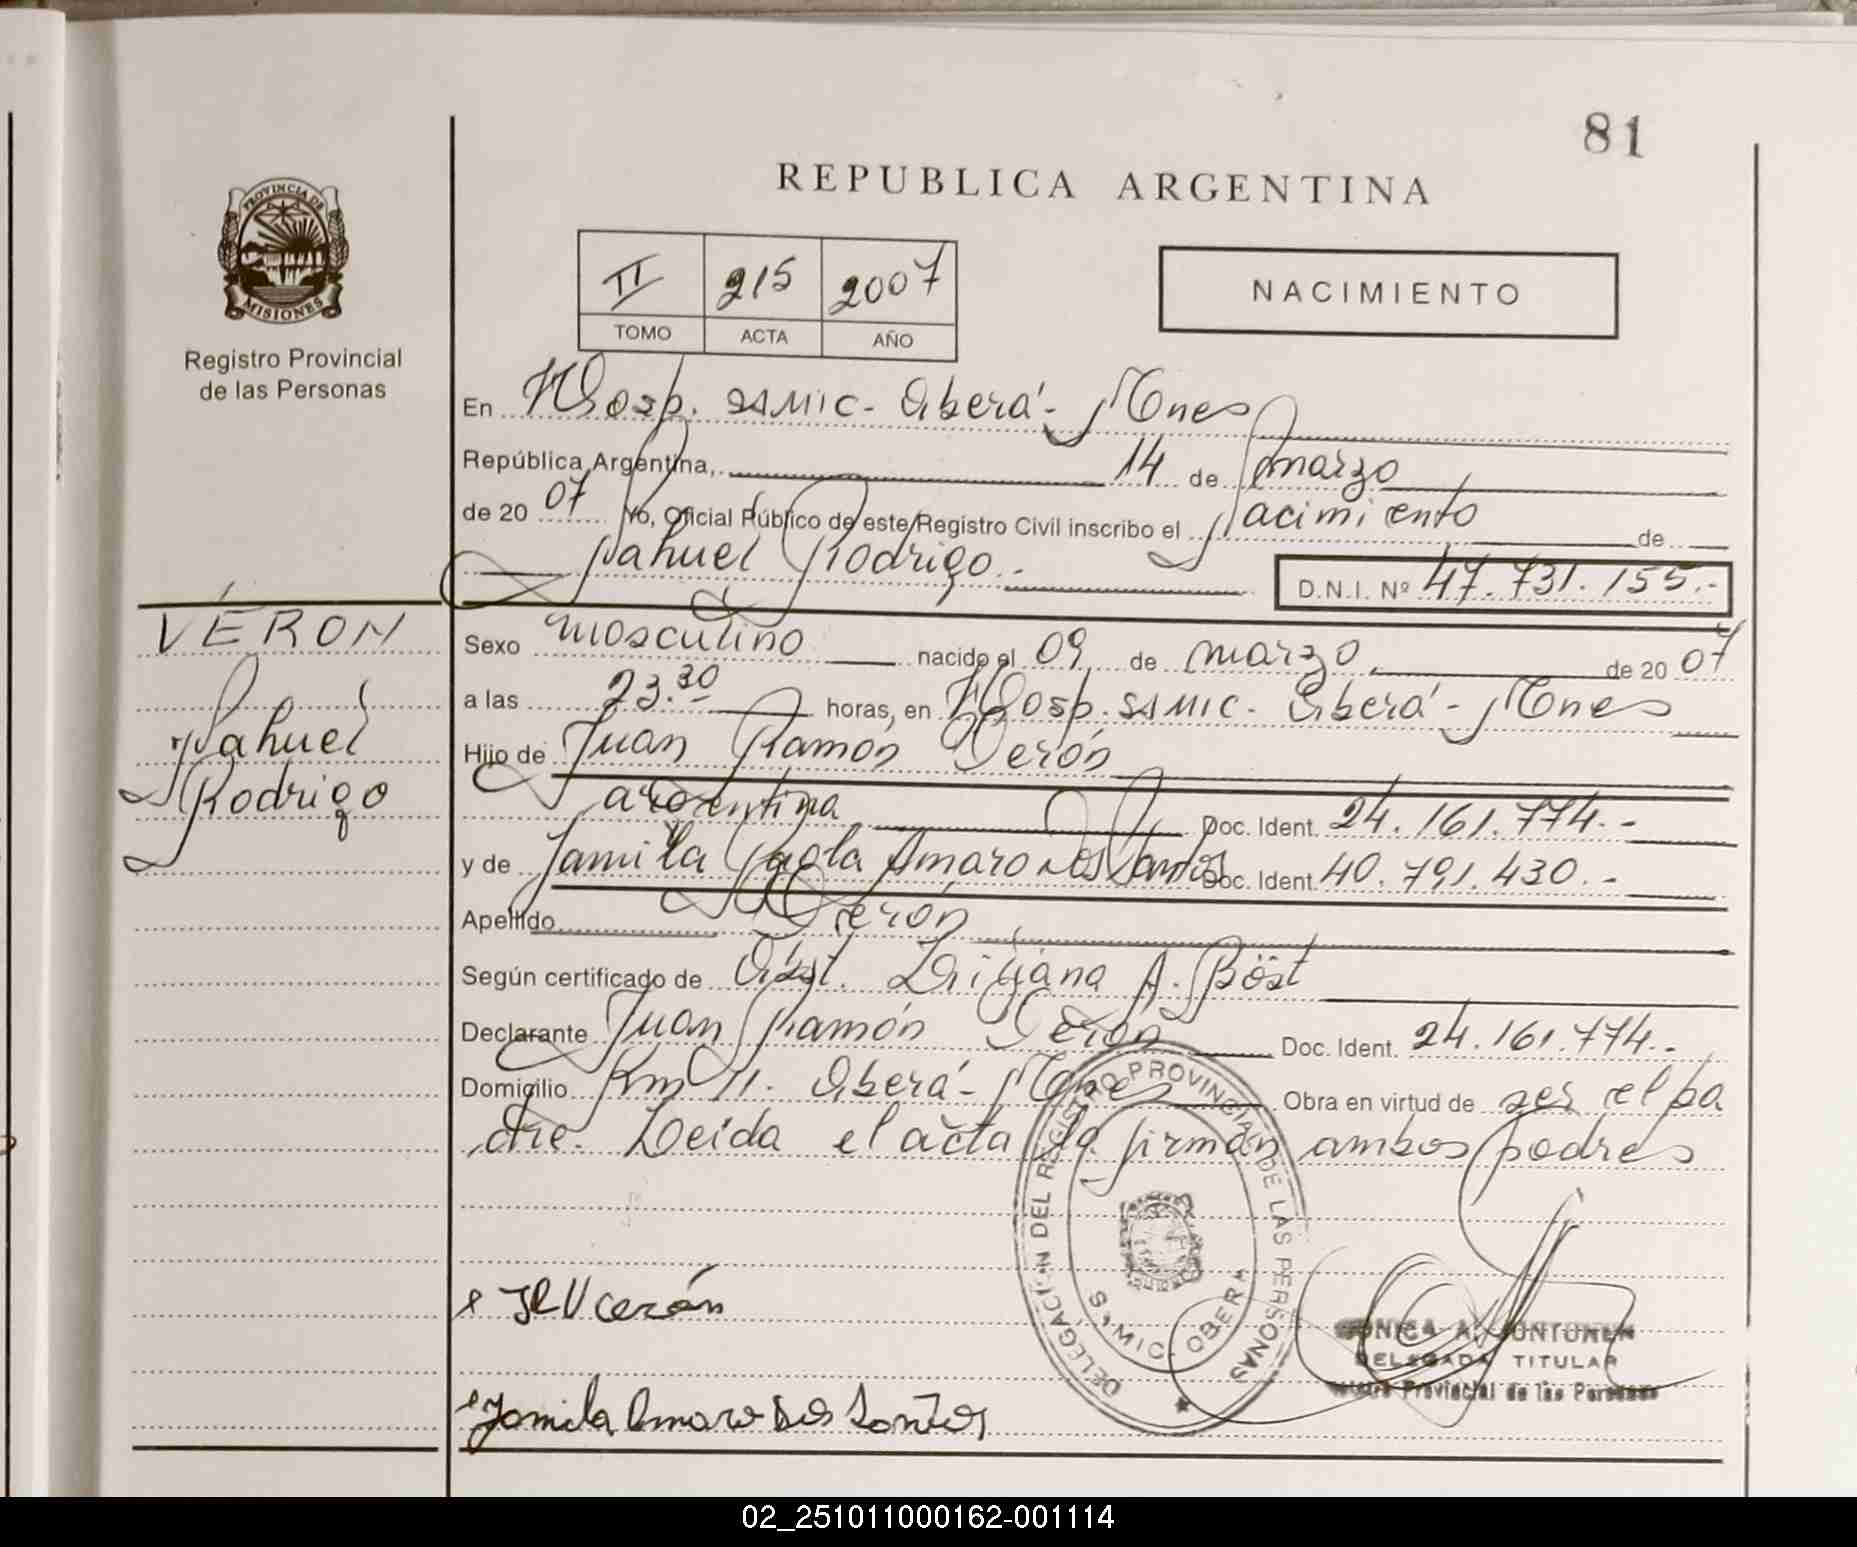 81
REPUBLICA ARGENTINA
PROVINCIA DE
MISIONES
Registro Provincial
de las Personas
II 215 2007
TOMO ACTA AÑO
NACIMIENTO
En Hosp. SAMIC - Oberá - Mnes
República Argentina, 14 de marzo
de 20 07 Yo, Oficial Público de este Registro Civil inscribo el Nacimiento de
Nahuel Rodrigo.- D.N.I. Nº 47.731.155.-
VERON
Nahuel
Rodrigo
Sexo masculino nacido el 09 de marzo de 20 07
a las 23.30 horas, en Hosp. SAMIC - Oberá - Mnes
Hijo de Juan Ramón Verón
argentina Doc. Ident. 24.161.774.-
y de Jamila Paola Amaro Dos Santos Doc. Ident. 40.791.430.-
Apellido Verón
Según certificado de Obst. A. Böst
Declarante Juan Ramón Verón Doc. Ident. 24.161.774.-
Domicilio Km 11. Oberá - Mnes Obra en virtud de ser el pa
dre. Leida el acta la firman ambos padres
DELEGACIÓN DEL REGISTRO PROVINCIAL DE LAS PERSONAS
SAMIC - OBERA
x JR Verón
x Jamila Amaro Dos Santos
DELEGADA TITULAR
Registro Provincial de las Personas
02_251011000162-001114